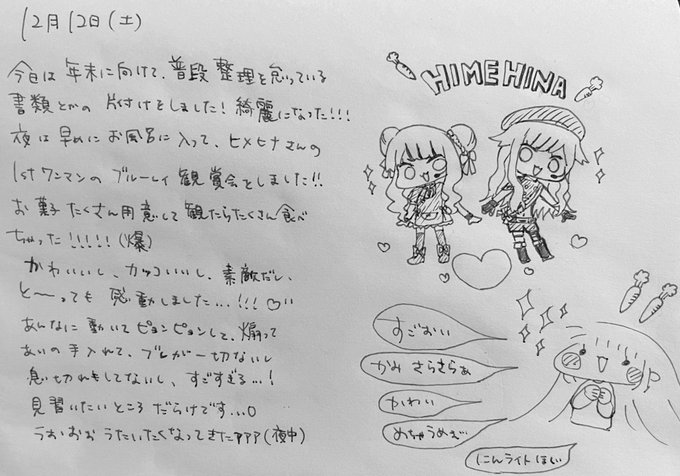 12月12日(土)
今日は年末に向けて、普段整理を怠っている
書類とかの片付けをしました!綺麗になった!!!
夜は早めにお風呂に入って、ヒメヒナさんの
1stワンマンのブルーレイ観賞会をしました!!
お菓子たくさん用意して観たらたくさん食べ
ちゃった!!!!!(爆)
かわいいし、カッコいいし、素敵だし、
と〜っても感動しました...!!!♡
あんなに動いてピョンピョンして、煽って
あいの手入れて、ブレが一切ないし
息切れもしてないし、すごすぎる...!
見習いたいところだらけです...。
うおおおおうたいたくなってきたアアア(夜中)
HIMEHINA
すごおい
かみさらさらぁ
かわい
めちゃうめぇ
にんライトほしい